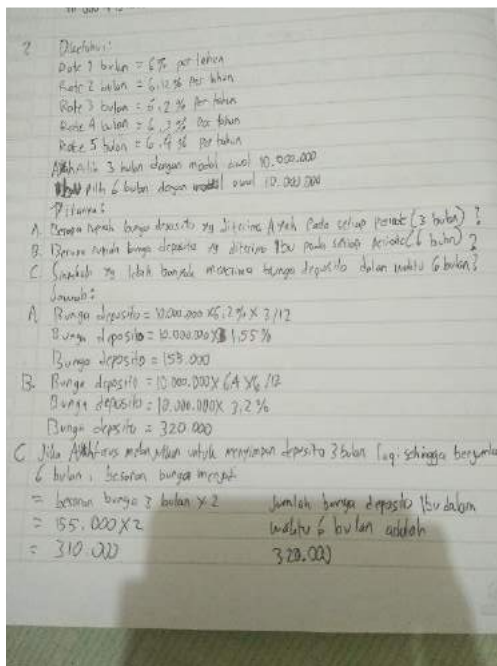 2 Diketahui:
Rate 1 bulan = 6% per tahun
Rate 2 bulan = 6,12% per tahun
Rate 3 bulan = 6,2% per tahun
Rate 4 bulan = 6,3% per tahun
Rate 5 bulan = 6,4% per tahun
Ayah pilih 3 bulan dengan modal awal 10.000.000
Ibu pilih 6 bulan dengan modal awal 10.000.000
Ditanya:
A. Berapa rupiah bunga deposito yg diterima Ayah pada setiap periode (3 bulan)?
B. Berapa rupiah bunga deposito yg diterima Ibu pada setiap periode (6 bulan)?
C. Siapakah yg lebih banyak menerima bunga deposito dalam waktu 6 bulan?
Jawab:
A Bunga deposito = 10.000.000 x 6,2% x 3/12
Bunga deposito = 10.000.000 x 1,55%
Bunga deposito = 155.000
B. Bunga deposito = 10.000.000 x 6,4 x 6/12
Bunga deposito = 10.000.000 x 3,2%
Bunga deposito = 320.000
C Jika Ayah terus melanjutkan untuk menyimpan deposito 3 bulan lagi sehingga berjumlah
6 bulan, besaran bunga menjadi
= besaran bunga 3 bulan x 2
= 155.000 x 2
= 310.000
Jumlah bunga deposito Ibu dalam
waktu 6 bulan adalah
320.000